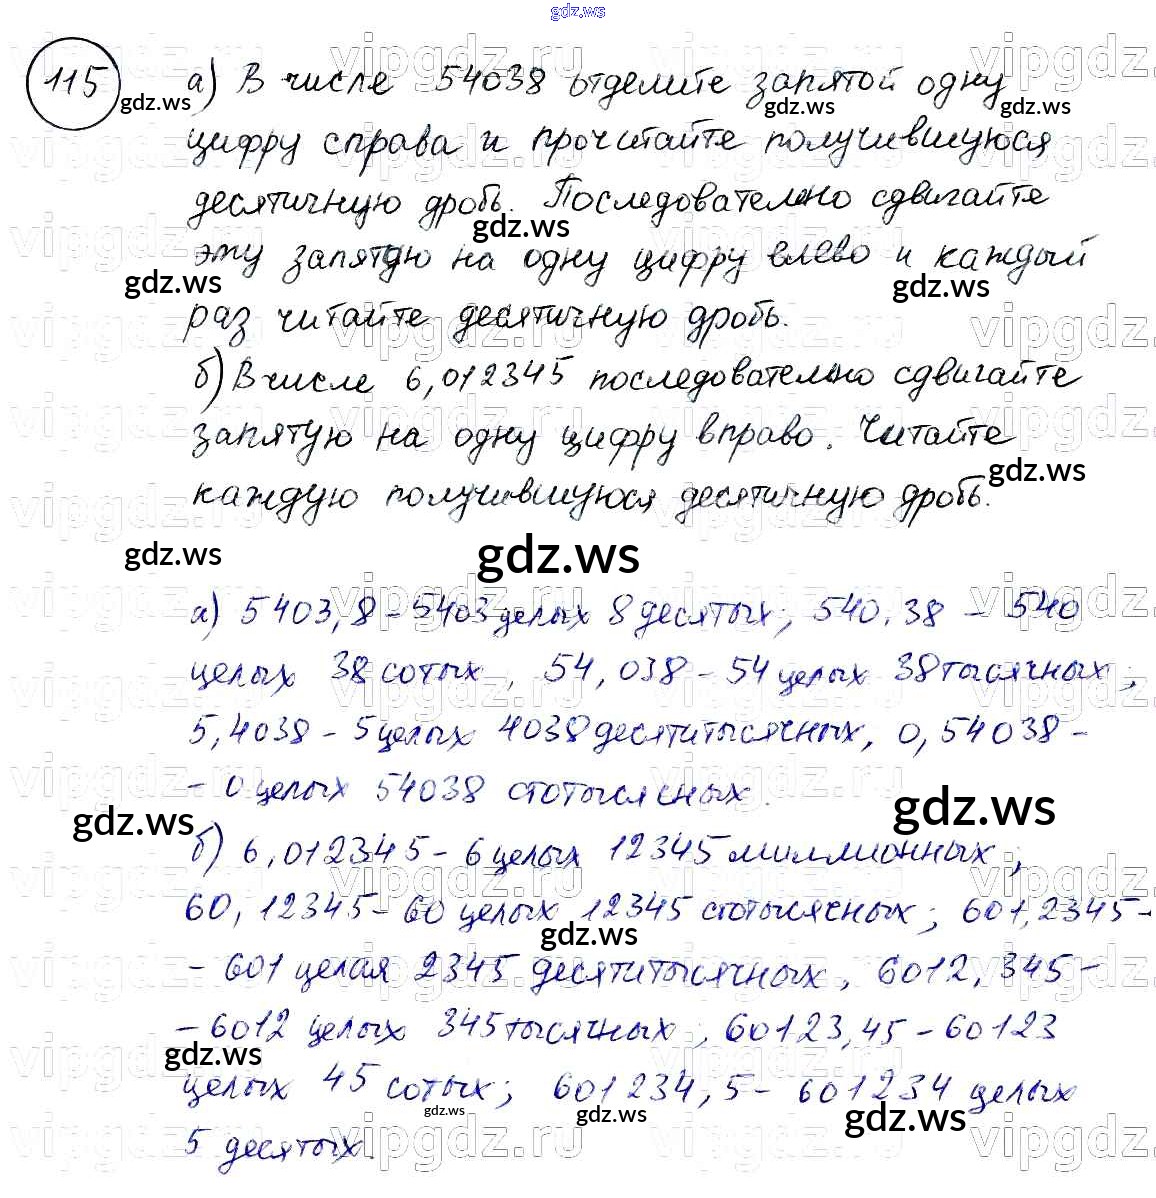 gdz.ws
115 а) В числе 54038 отделите запятой одну
цифру справа и прочитайте получившуюся
десятичную дробь. Последовательно сдвигайте
эту запятую на одну цифру влево и каждый
раз читайте десятичную дробь.
б) В числе 6,012345 последовательно сдвигайте
запятую на одну цифру вправо. Читайте
каждую получившуюся десятичную дробь.
gdz.ws
а) 5403,8 - 5403 целых 8 десятых; 540,38 - 540
целых 38 сотых, 54,038 - 54 целых 38 тысячных;
5,4038 - 5 целых 4038 десятитысячных, 0,54038 -
- 0 целых 54038 стотысячных.
gdz.ws
б) 6,012345 - 6 целых 12345 миллионных;
60,12345 - 60 целых 12345 стотысячных; 601,2345 -
- 601 целая 2345 десятитысячных, 6012,345 -
- 6012 целых 345 тысячных, 60123,45 - 60123
целых 45 сотых; 601234,5 - 601234 целых
5 десятых.